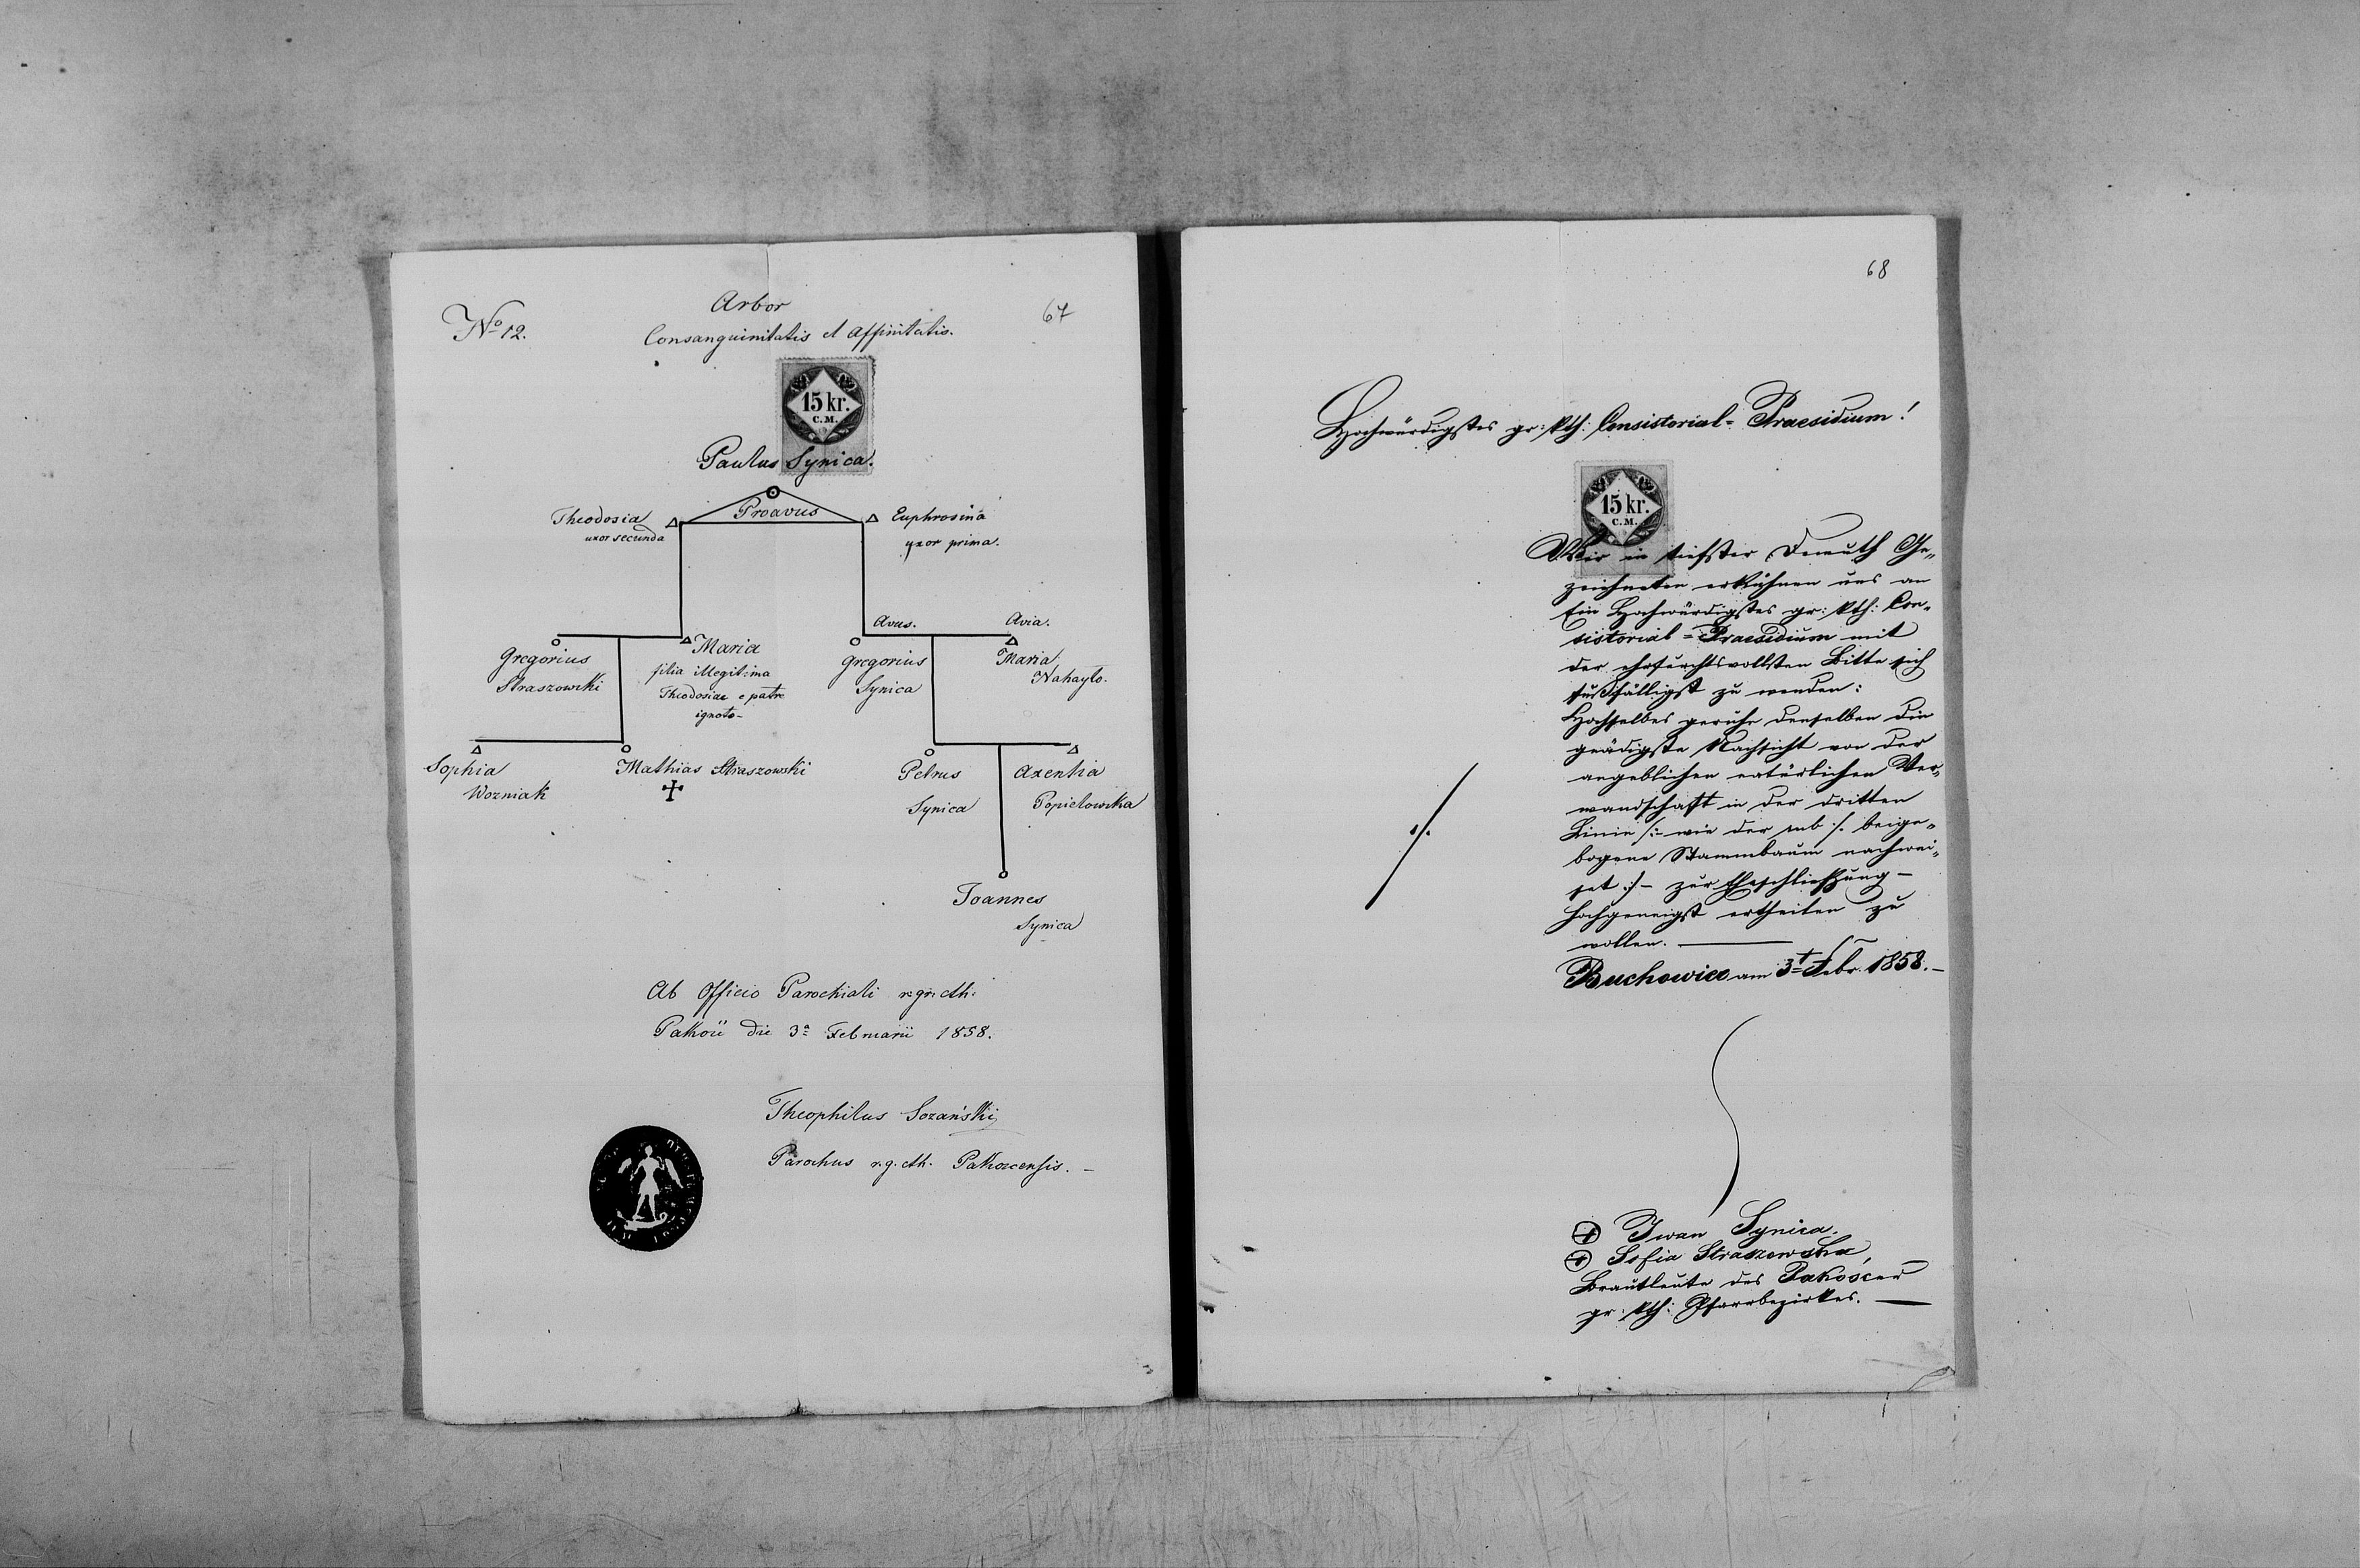 No 12.
Arbor
67
Consanguinitatis et Affinitatis.
15 kr.
C.M.
Paulus Synica.
Proavus
Theodosia
uxor secunda
Euphrosina
uxor prima.
Avus.
Avia.
Gregorius
Straszowski
Maria
filia illegitima
Theodosiae e patre
ignoto-
Gregorius
Synica
Maria
Nahayło.
Sophia
Wozniak
Mathias Straszowski
Petrus
Synica
Axentia
Popielowska
Joannes
Synica
Ab Officio Parochiali r. gr: cth.
die 3a Februarii 1858.
Theophilus Sozański
Parochus r. g. cth. Pakoscensis. -
68
Hochwürdigstes gr: kth: Consistorial-Praesidium!
15 kr.
C.M.
Wir in tiefster Demuth Ge-
zeichneten erkühnen uns an
Ein Hochwürdigstes gr: kth: Con-
sistorial-Praesidium mit
der ehrfurchtsvollsten Bitte sich
fußfälligst zu wenden:
Hochselbes geruhe denselben die
gnädigste Nachsicht von der
angeblichen natürlichen Ver-
wandschaft in der dritten
Linie /:- wie der sub ·/. beige-
bogene Stammbaum nachwei-
set :/- zur Eheschließung -
hochgeneigst ertheilen zu
wollen.
·/.
Buchowice am 3t Febr. 1858. -
Iwan Synica
Sofia Straszowska,
Brautleute des Pakoścer
gr: kth: Pfarrbezirkes.